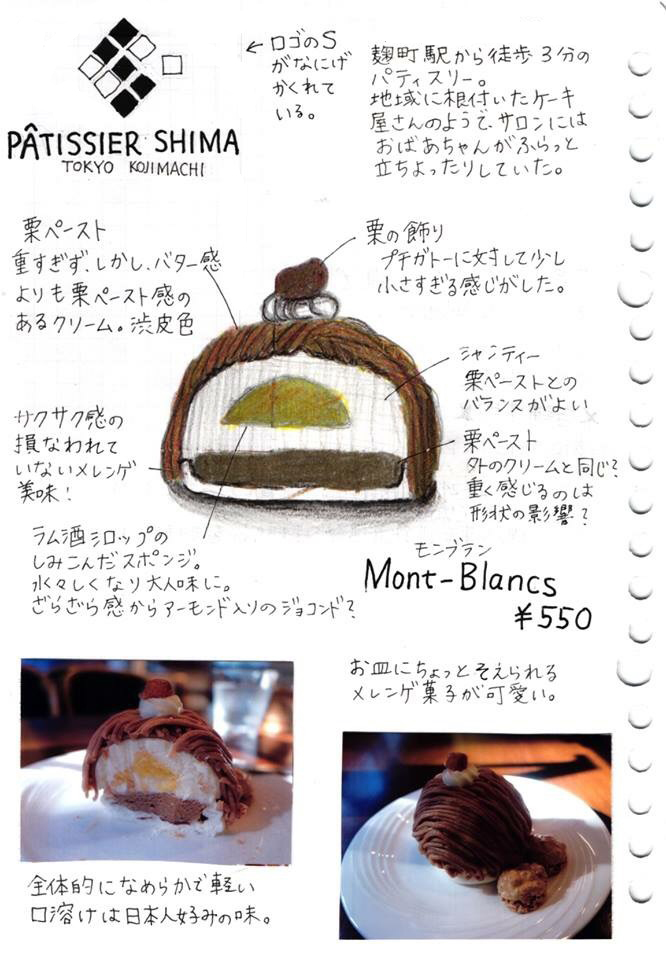 PÂTISSIER SHIMA
TOKYO KOJIMACHI
← ロゴのS
がなにげ
かくれて
いる。
麹町駅から徒歩3分の
パティスリー。
地域に根付いたケーキ
屋さんのようで、サロンには
おばあちゃんがふらっと
立ちよったりしていた。
栗ペースト
重すぎず、しかし、バター感
よりも栗ペースト感の
あるクリーム。渋皮色
栗の飾り
プチガトーに対して少し
小さすぎる感じがした。
シャンティー
栗ペーストとの
バランスがよい
サクサク感の
損なわれて
いないメレンゲ
美味!
栗ペースト
外のクリームと同じ?
重く感じるのは
形状の影響?
ラム酒シロップの
しみこんだスポンジ。
水々しくなり大人味に。
ざらざら感からアーモンド入りのジョコンド?
モンブラン
Mont-Blancs
¥550
お皿にちょっとそえられる
メレンゲ菓子が可愛い。
全体的になめらかで軽い
口溶けは日本人好みの味。